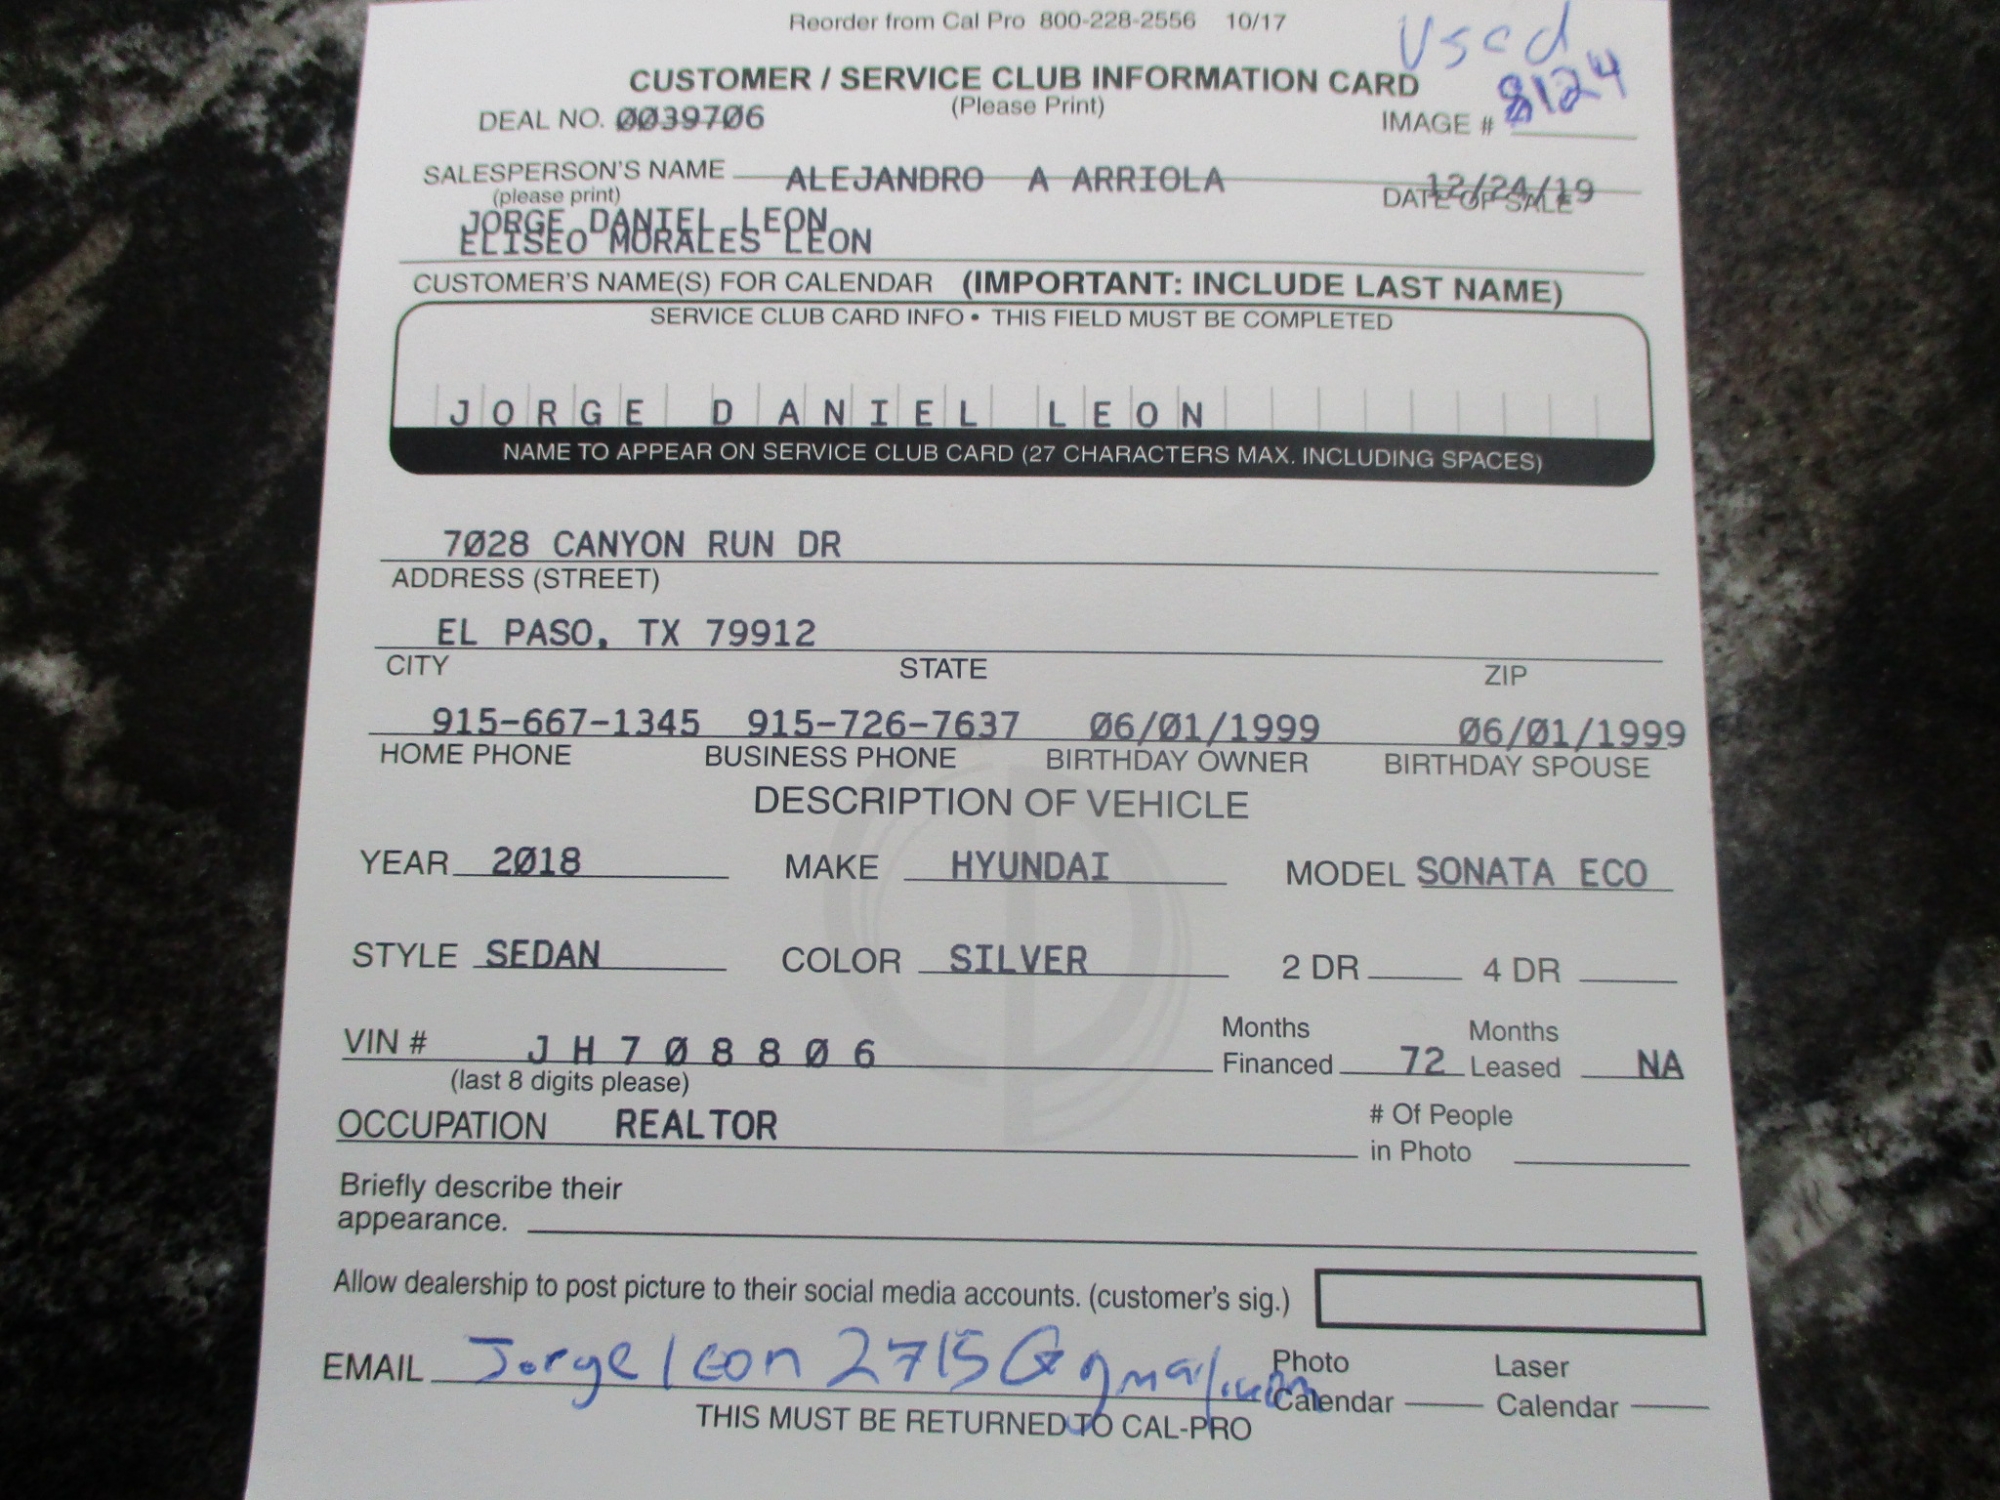 Reorder from Cal Pro 800-228-2556 10/17
Used
CUSTOMER / SERVICE CLUB INFORMATION CARD
(Please Print)
DEAL NO. 0039706
IMAGE # 8124
SALESPERSON'S NAME ALEJANDRO A ARRIOLA
(please print)
DATE OF SALE 12/24/19
JORGE DANIEL LEON
ELISEO MORALES LEON
CUSTOMER'S NAME(S) FOR CALENDAR (IMPORTANT: INCLUDE LAST NAME)
SERVICE CLUB CARD INFO • THIS FIELD MUST BE COMPLETED
JORGE DANIEL LEON
NAME TO APPEAR ON SERVICE CLUB CARD (27 CHARACTERS MAX. INCLUDING SPACES)
7028 CANYON RUN DR
ADDRESS (STREET)
EL PASO, TX 79912
CITY STATE ZIP
915-667-1345 915-726-7637 06/01/1999 06/01/1999
HOME PHONE BUSINESS PHONE BIRTHDAY OWNER BIRTHDAY SPOUSE
DESCRIPTION OF VEHICLE
YEAR 2018 MAKE HYUNDAI MODEL SONATA ECO
STYLE SEDAN COLOR SILVER 2 DR 4 DR
VIN # JH708806
(last 8 digits please)
Months Financed 72 Months Leased NA
OCCUPATION REALTOR
# Of People in Photo
Briefly describe their
appearance.
Allow dealership to post picture to their social media accounts. (customer's sig.)
EMAIL Jorgeleon2715@gmail.com
Photo Calendar Laser Calendar
THIS MUST BE RETURNED TO CAL-PRO